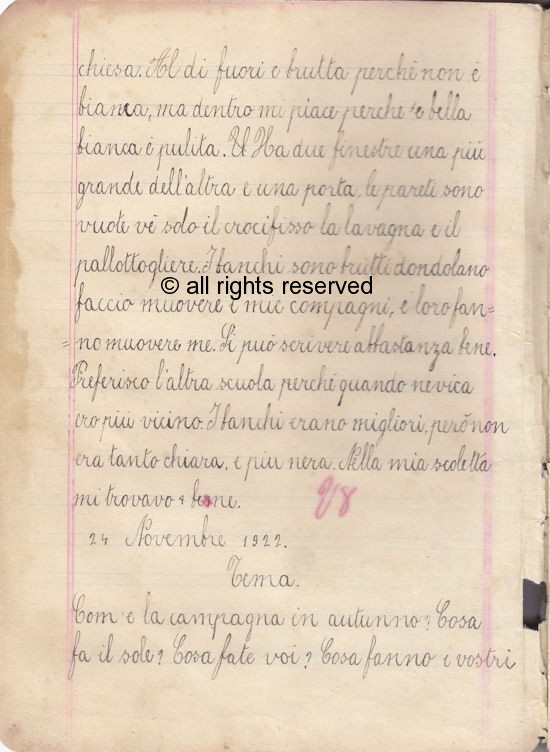 chiesa. Al di fuori e brutta perchè non è
bianca, ma dentro mi piace perche è bella
bianca è pulita. Ha due finestre una più
grande dell'altra e una porta, le pareti sono
vuote vè solo il crocifisso la lavagna e il
pallottogliere. I banchi sono brutti dondolano
© all rights reserved
faccio muovere i mie compagni, e loro fan=
=no muovere me. Si può scrivere abbastanza bene.
Preferisco l'altra scuola perchè quando nevica
ero più vicino. I banchi erano migliori, però non
era tanto chiara, e più nera. Nella mia scoletta
mi trovavo bene.
24 Novembre 1922.
Tema.
Com e la campagna in autunno? Cosa
fa il sole? Cosa fate voi? Cosa fanno i vostri